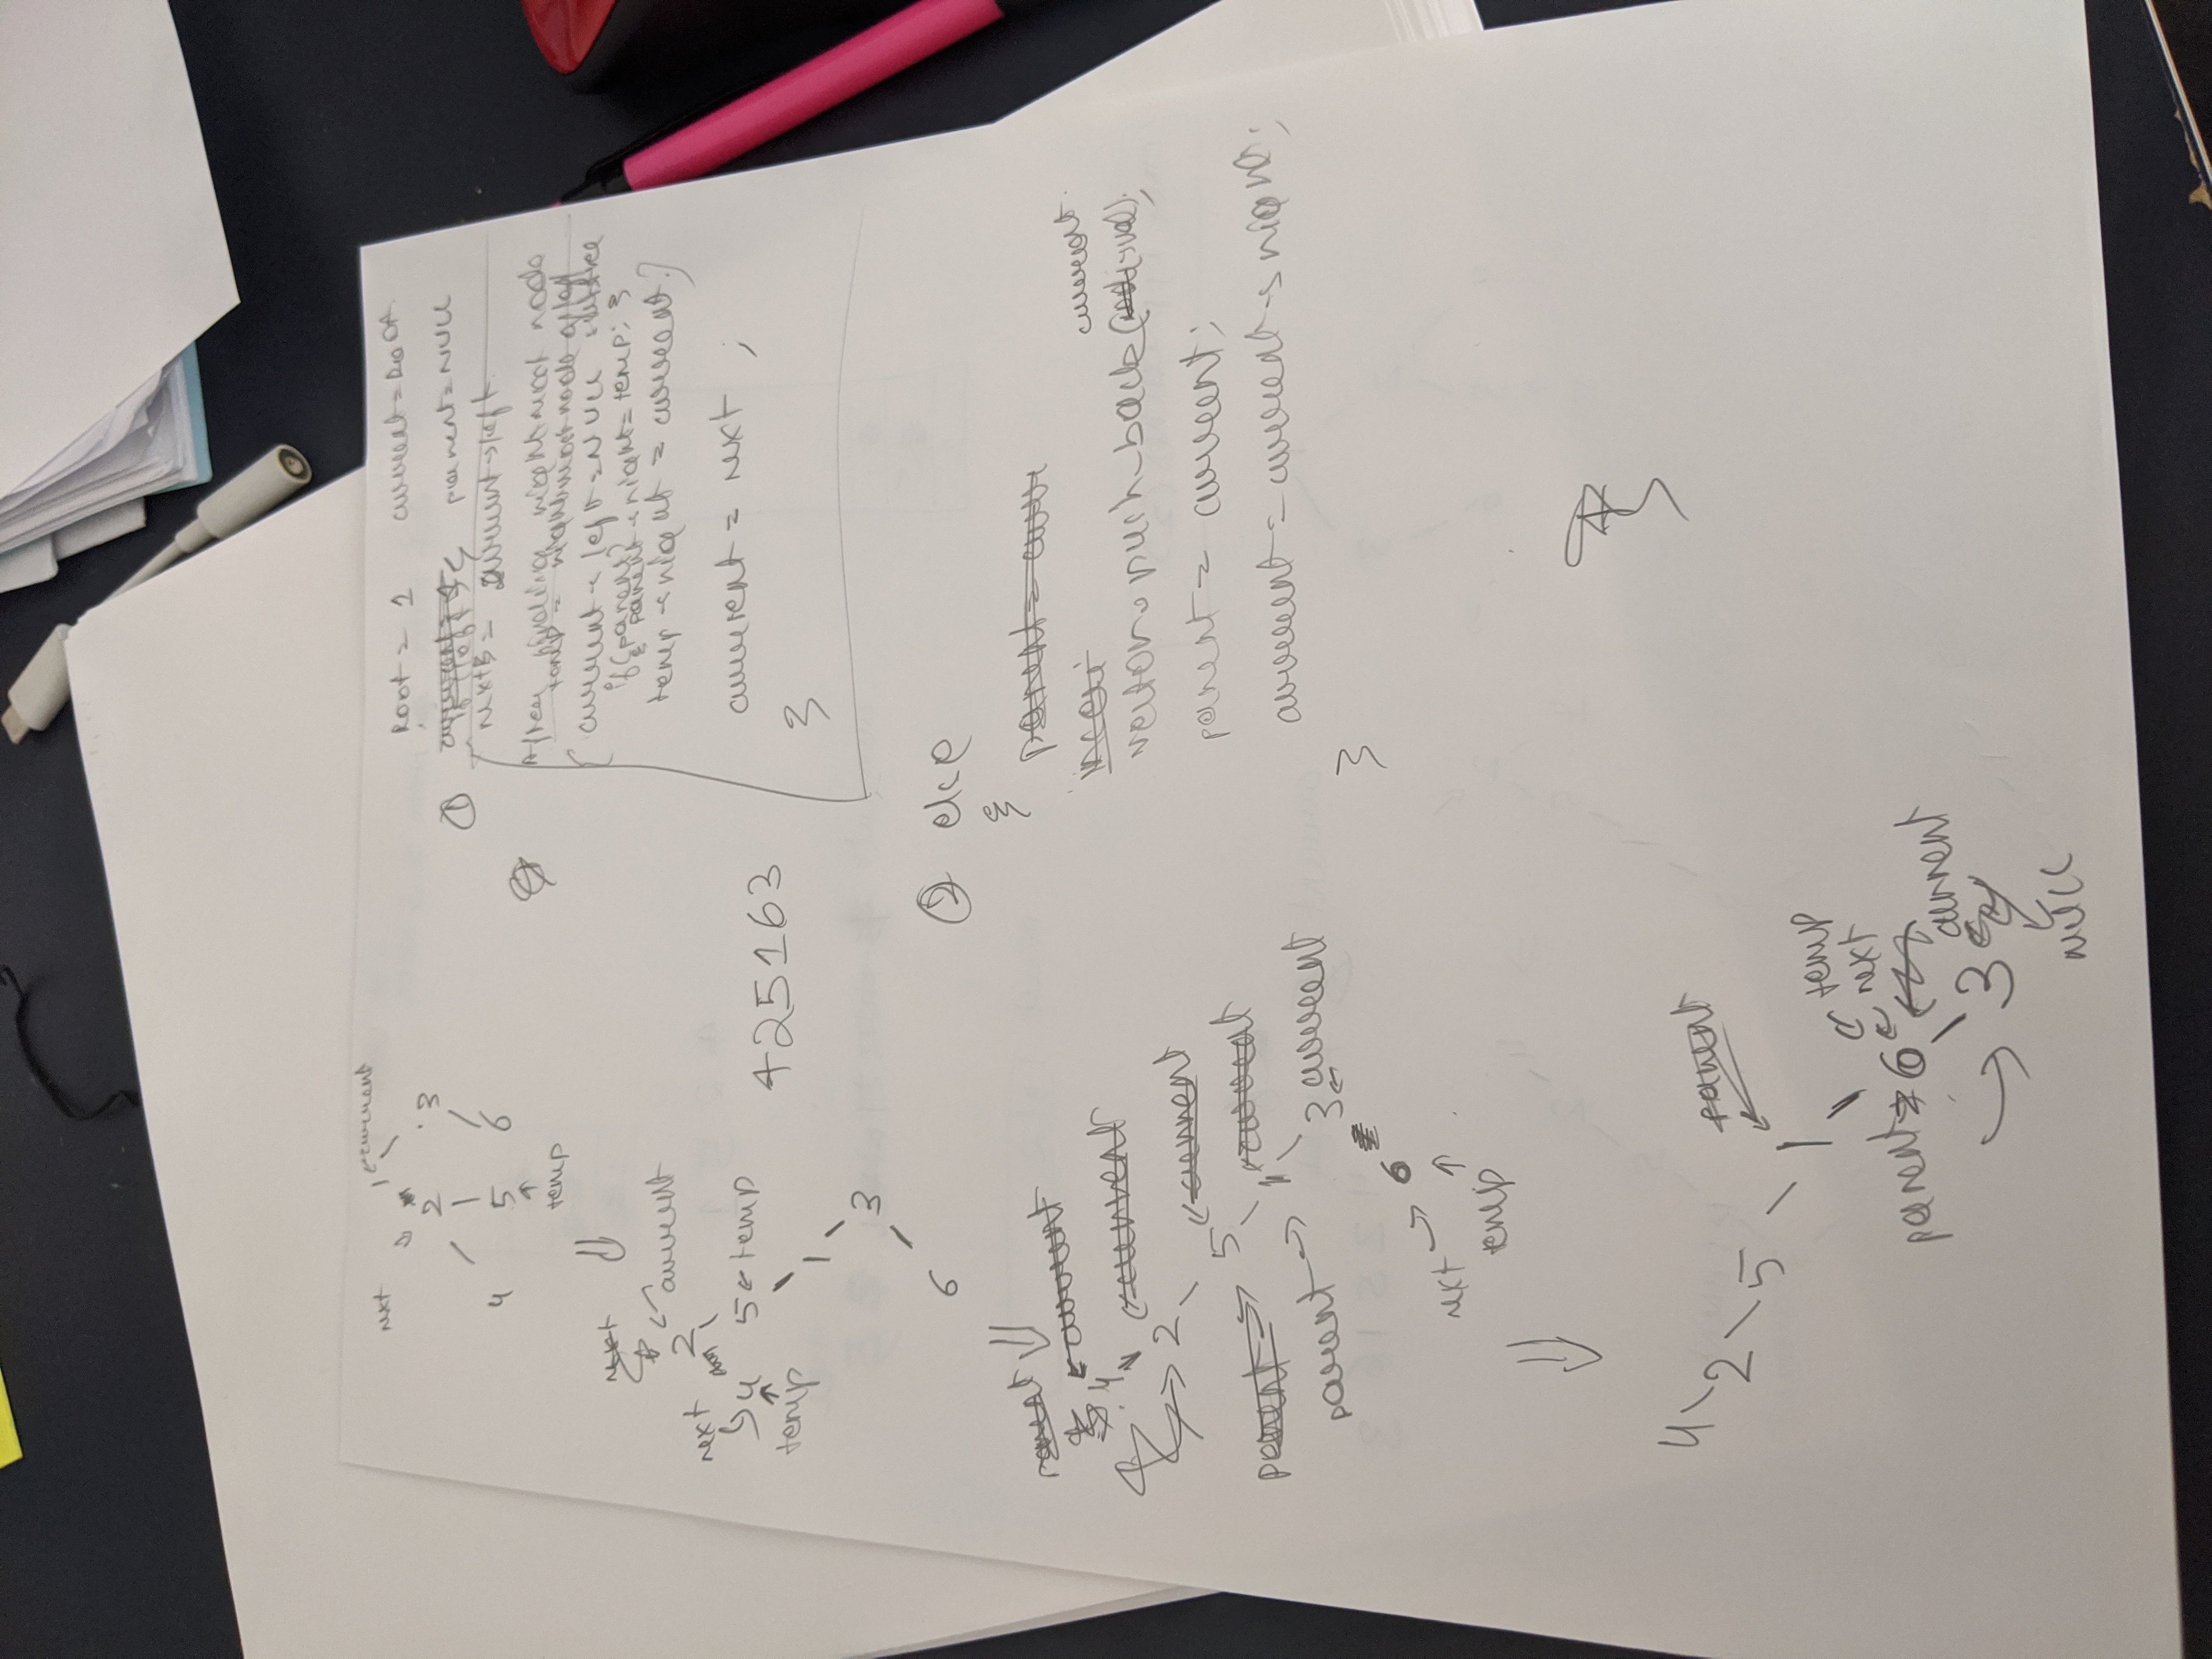 next
1 ← current
2 3
4 5 6
↑
temp
⇓
next
2 ← current
next
4 5 ← temp
temp
1
3
6
⇓
parent
← current
4
2 ← current
5 ← current
parent →
1 ← current
parent →
3 ← current
6
next →
↑
temp
⇓
4
2
5
parent
1
← temp
← next
parent → 6
current
→ 3
NULL
425163
Root = 1 current = Root
① parent = NULL
next = current→left
After finding rightmost node
temp = rightmost node of left
current→left = NULL subtree
if(parent)
{ parent→right = temp; }
temp→right = current;
current = next ;
}
② else
{
parent = curr
current
vector.push_back( →val);
parent = current;
current = current→right;
}
}